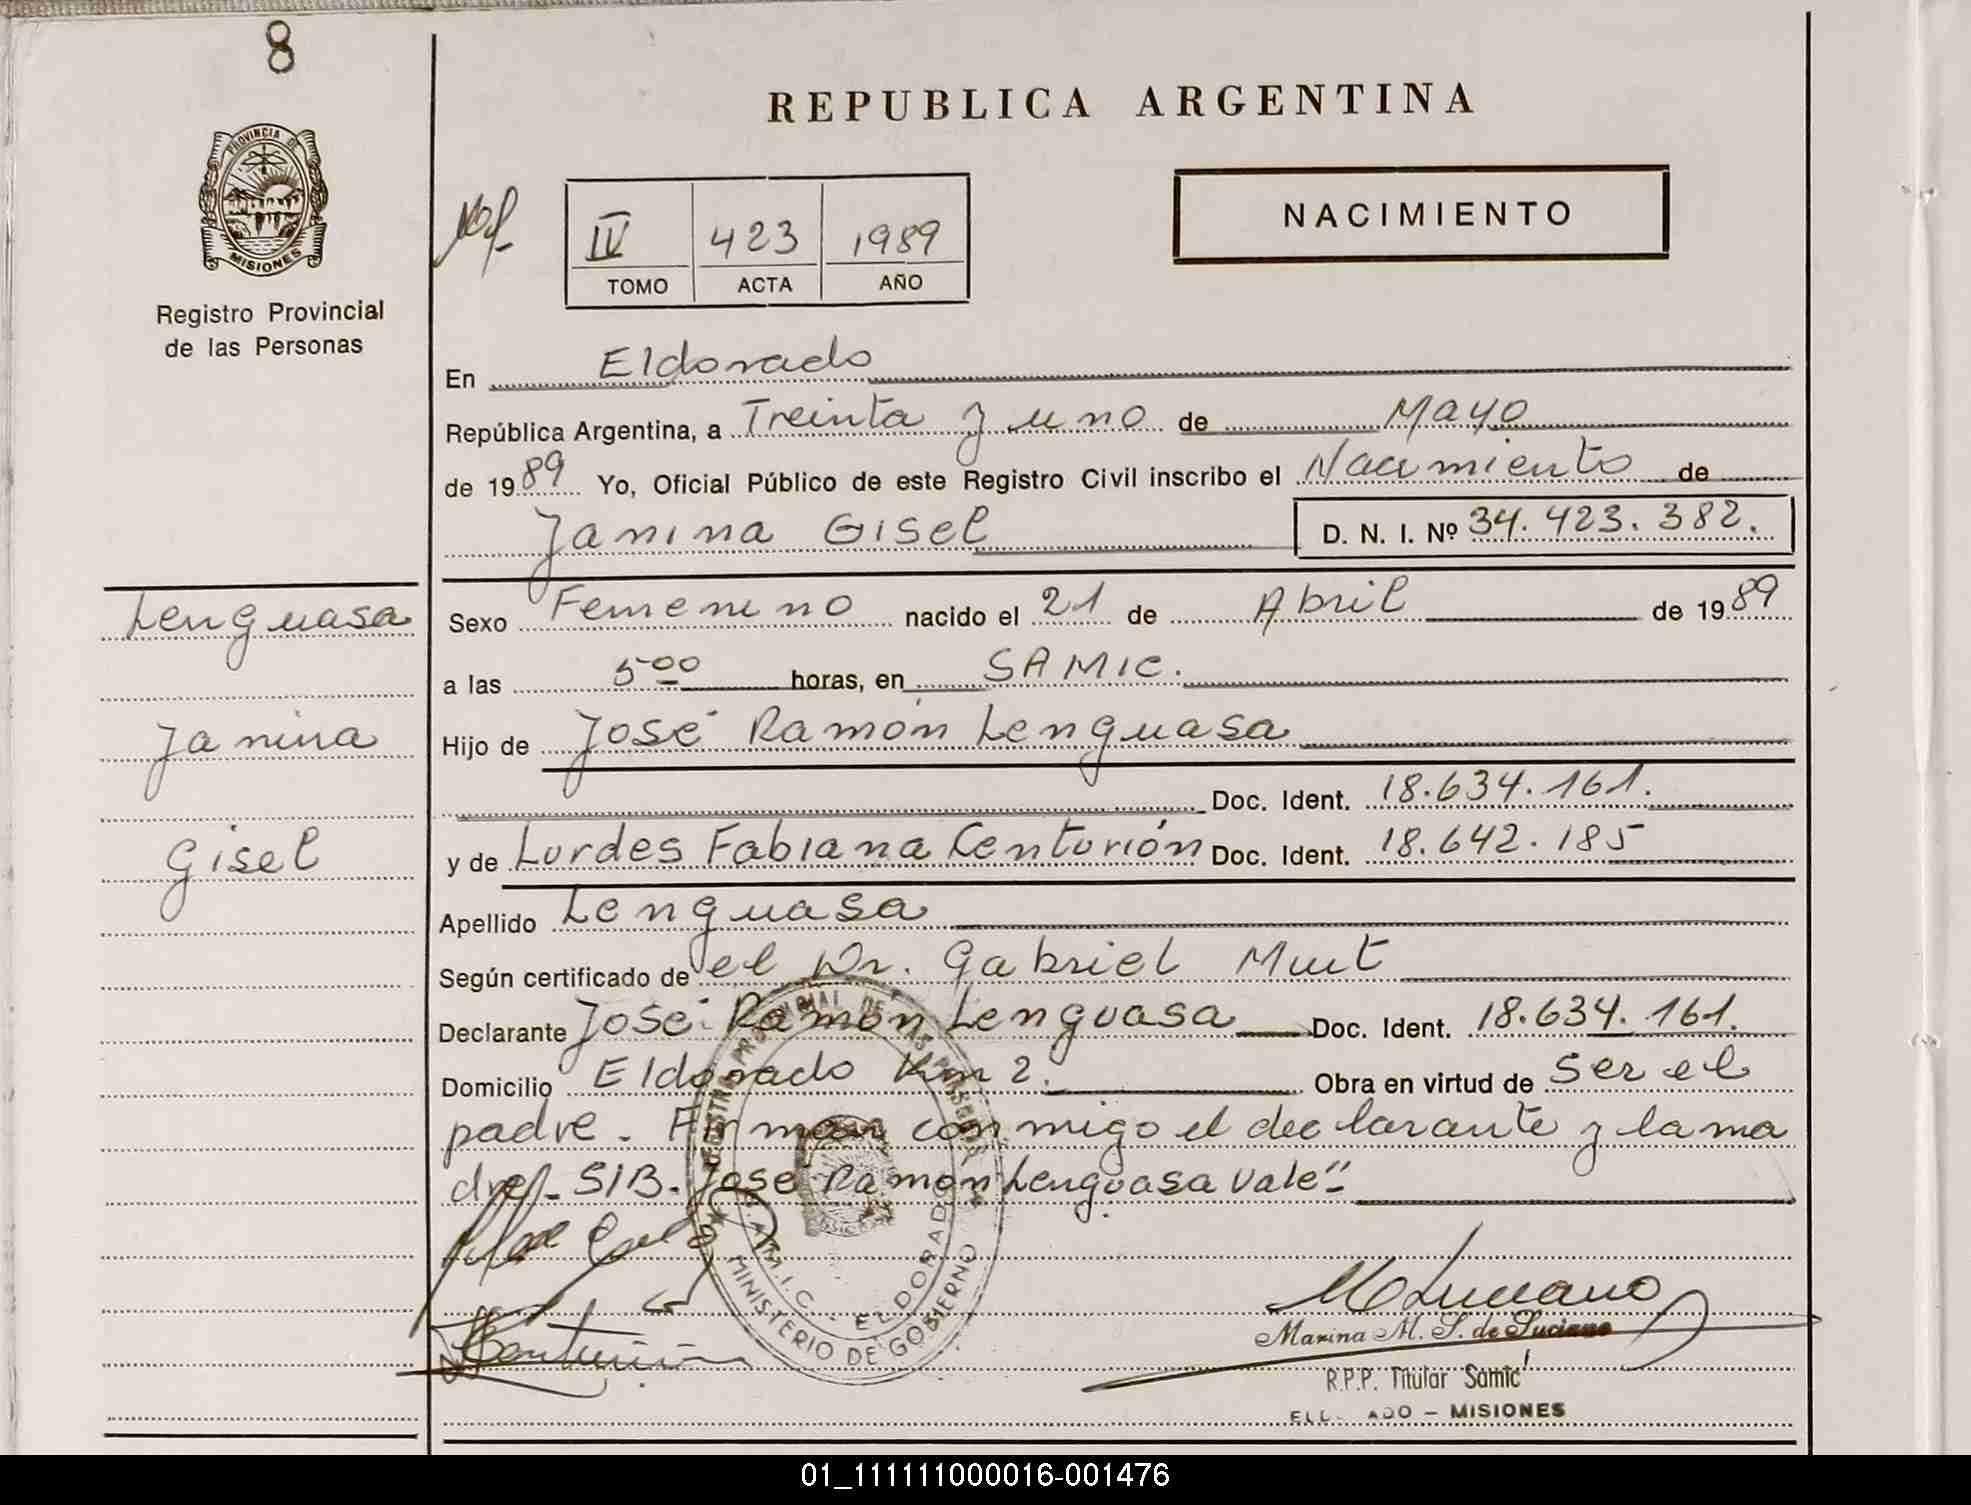 8
REPUBLICA ARGENTINA
PROVINCIA DE
MISIONES
Registro Provincial
de las Personas
IV 423 1989
TOMO ACTA AÑO
NACIMIENTO
En Eldorado
República Argentina, a Treinta y uno de Mayo
de 1989 Yo, Oficial Público de este Registro Civil inscribo el Nacimiento de
Janina Gisel D. N. I. Nº 34.423.382.
Lenguasa
Janina
Gisel
Sexo Femenino nacido el 21 de Abril de 1989
a las 5 00 horas, en SAMIC.
Hijo de José Ramón Lenguasa
Doc. Ident. 18.634.161.
y de Lurdes Fabiana Centurión Doc. Ident. 18.642.185
Apellido Lenguasa
Según certificado de el Dr. Gabriel
Declarante José Ramón Lenguasa Doc. Ident. 18.634.161.
Domicilio Eldorado Km 2. Obra en virtud de ser el
padre. Firman conmigo el declarante y la ma
dre. S/B. José Ramón Lenguasa Vale"
MINISTERIO DE GOBIERNO
S.A.M.I.C. ELDORADO
Centurión
Marina M. S. de Luciano
R.P.P. Titular Samic
MISIONES
01_111111000016-001476